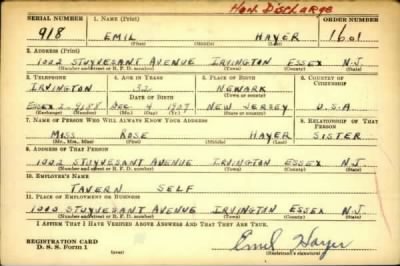 Hon. Discharge
SERIAL NUMBER 1. NAME (Print) ORDER NUMBER
918 EMIL HAYER 1601
(First) (Middle) (Last)
2. ADDRESS (Print)
1002 STUYVESANT AVENUE IRVINGTON ESSEX N.J.
(Number and street or R. F. D. number) (Town) (County) (State)
3. TELEPHONE 4. AGE IN YEARS 5. PLACE OF BIRTH 6. COUNTRY OF CITIZENSHIP
IRVINGTON 32 NEWARK
DATE OF BIRTH (Town or county)
ESSEX 2-9188 DEC 4 1907 NEW JERSEY U.S.A
(Exchange) (Number) (Mo.) (Day) (Yr.) (State or country)
7. NAME OF PERSON WHO WILL ALWAYS KNOW YOUR ADDRESS 8. RELATIONSHIP OF THAT PERSON
MISS ROSE HAYER SISTER
(Mr., Mrs., Miss) (First) (Middle) (Last)
9. ADDRESS OF THAT PERSON
1002 STUYVESANT AVENUE IRVINGTON ESSEX N.J.
(Number and street or R. F. D. number) (Town) (County) (State)
10. EMPLOYER'S NAME
TAVERN SELF
11. PLACE OF EMPLOYMENT OR BUSINESS
STUYVESANT AVENUE IRVINGTON ESSEX N.J.
(Number and street or R. F. D. number) (Town) (County) (State)
I AFFIRM THAT I HAVE VERIFIED ABOVE ANSWERS AND THAT THEY ARE TRUE.
REGISTRATION CARD
D. S. S. Form 1
Emil Hayer
(Registrant's signature)